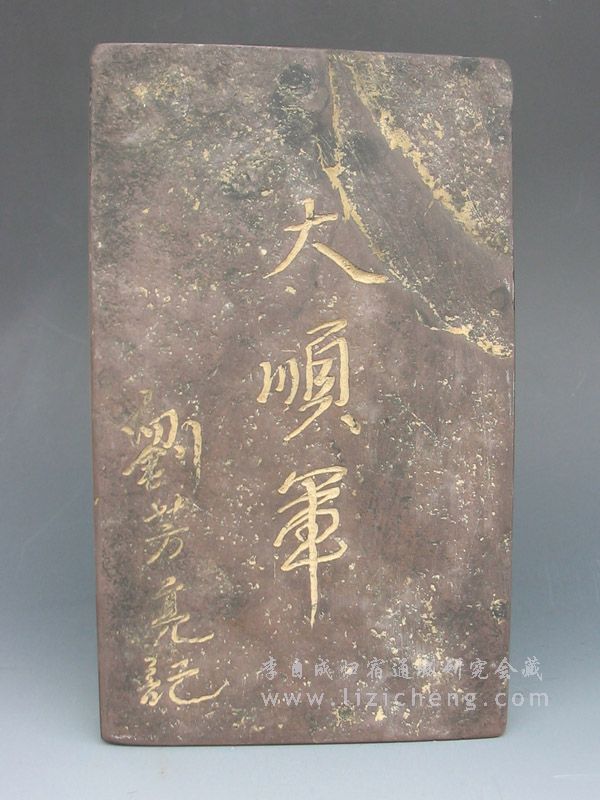 大順軍
劉芳亮記
李自成归宿通城研究会藏
www.lizicheng.com